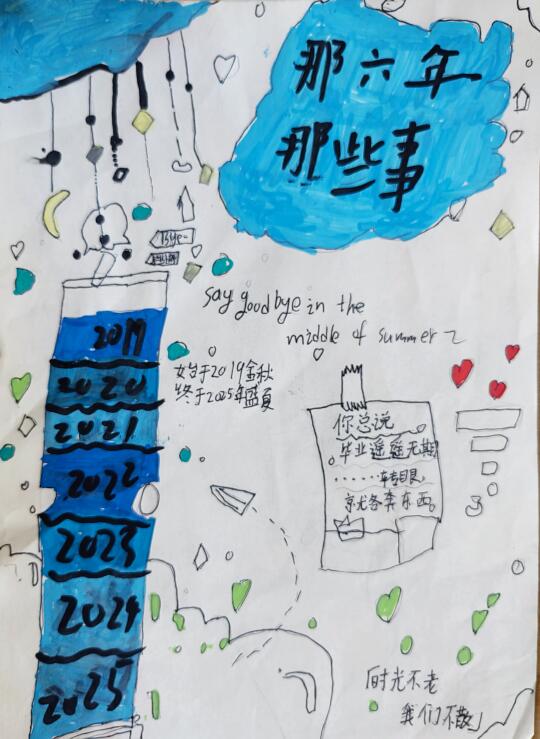 那六年
那些事
Bye~
say goodbye in the
middle of summer ~
2019
2020
2021
2022
2023
2024
2025
始于2019金秋
终于2025年蓝夏
你总说
毕业遥遥无期
......转眼
就各奔东西。
「时光不老
我们不散」